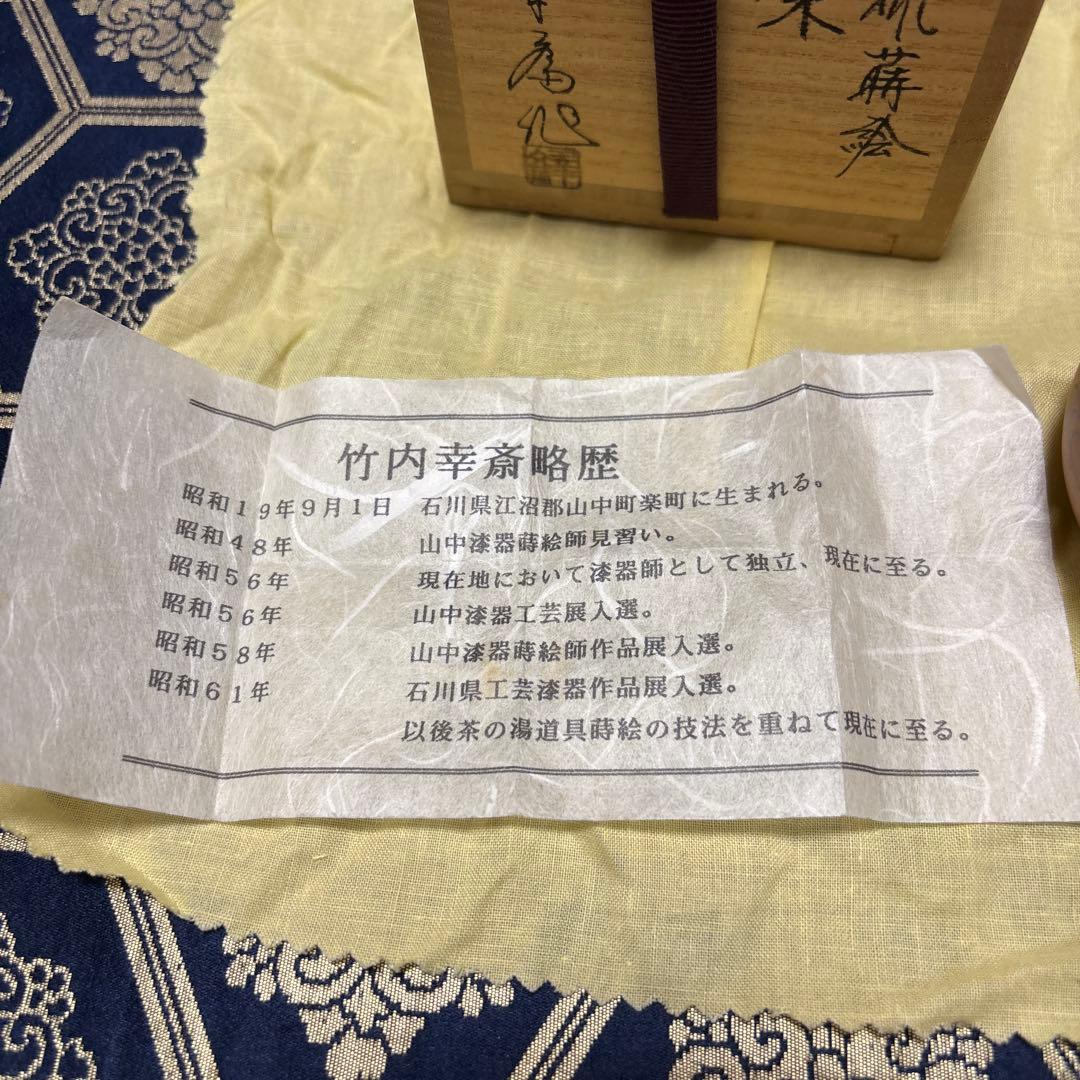 蒔絵
斎作
竹内幸斎略歴
昭和19年9月1日 石川県江沼郡山中町楽町に生まれる。
昭和48年 山中漆器蒔絵師見習い。
昭和56年 現在地において漆器師として独立、現在に至る。
昭和56年 山中漆器工芸展入選。
昭和58年 山中漆器蒔絵師作品展入選。
昭和61年 石川県工芸漆器作品展入選。
以後茶の湯道具蒔絵の技法を重ねて現在に至る。